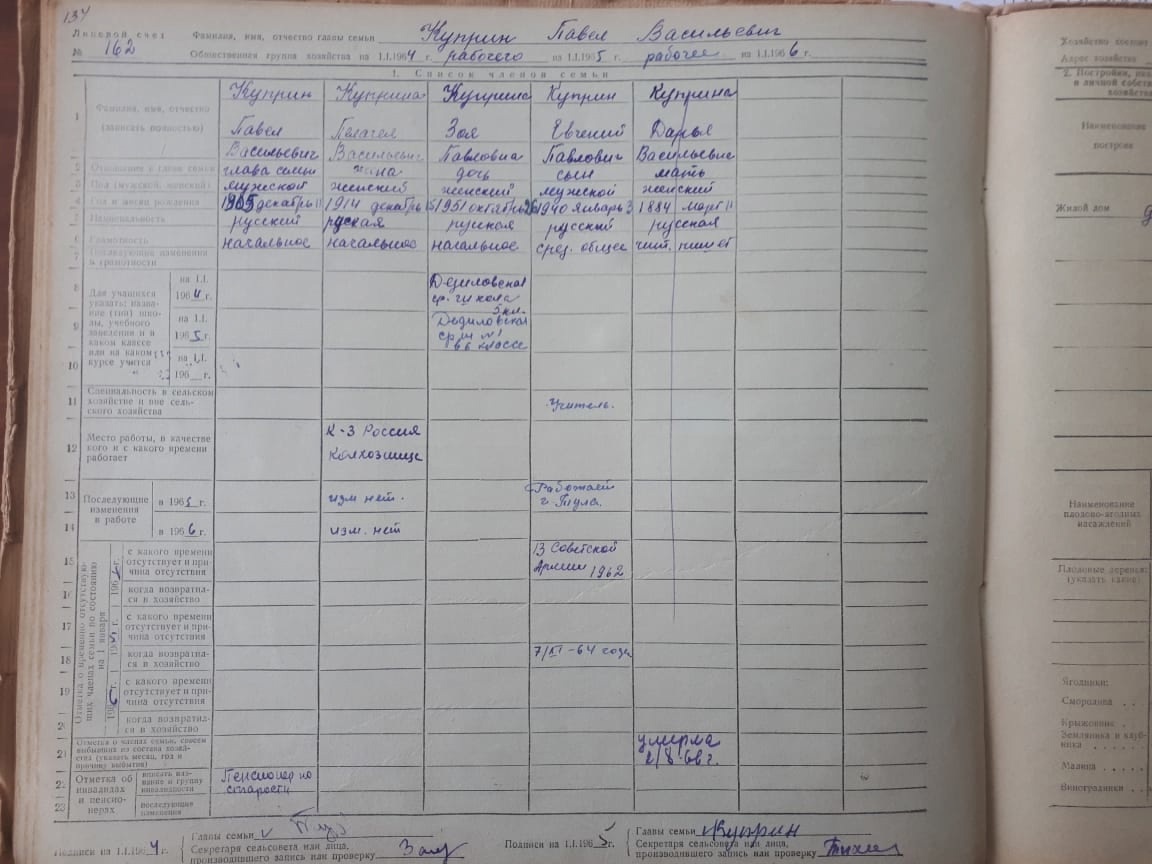 134
Лицевой счет Фамилия, имя, отчество главы семьи Куприн Павел Васильевич
№ 162 Общественная группа хозяйства на 1.I.1964 г. рабочего на 1.I.1965 г. рабочее на 1.I.1966 г.
1. Список членов семьи
1 Фамилия, имя, отчество (записать полностью)
Куприн Куприна Куприна Куприн Куприна
Павел Пелагея Зоя Евгений Дарья
Васильевич Васильевн Павловна Павлович Васильевн
2 Отношение к главе семьи глава семьи жена дочь сын мать
3 Пол (мужской, женский) мужской женский женский мужской женский
4 Год и месяц рождения 1905 декабрь 11 1914 декабрь 15 1951 октябрь 26 1940 январь 3 1884 март 11
5 Национальность русский руская русская русский русская
6 Грамотность начальное начальное начальное сред. общее чит. пишет
7 Последующие изменения в грамотности
Для учащихся указать: название (тип) школы, учебного заведения и в каком классе или на каком курсе учится
8 на 1.I. 1964 г. Дедиловская ср. школа 5 кл.
9 на 1.I. 1965 г. Дедиловская ср. шк 6 классе
10 на 1.I. 196 г.
11 Специальность в сельском хозяйстве и вне сельского хозяйства Учитель.
12 Место работы, в качестве кого и с какого времени работает К-з Россия
Колхозница
Последующие изменения в работе
13 в 1965 г. изм нет. Работает
г. Тула.
14 в 1966 г. изм. нет
Отметка о временно отсутствующих членах семьи по состоянию на 1 января
15 с какого времени отсутствует и причина отсутствия В Советской
Армии 1962
16 когда возвратился в хозяйство
17 с какого времени отсутствует и причина отсутствия
18 когда возвратился в хозяйство 7/XI-64 года
19 с какого времени отсутствует и причина отсутствия
20 когда возвратился в хозяйство
21 Отметка о членах семьи, совсем выбывших из состава хозяйства (указать месяц, год и причину выбытия) умерла
2/8-66 г.
Отметка об инвалидах и пенсионерах
22 вписать название и группу инвалидности Пенсионер по
старости
23 последующие изменения
Подписи на 1.I.1964 г. Главы семьи
Секретаря сельсовета или лица, производившего запись или проверку
Подписи на 1.I.1965 г. Главы семьи Куприн
Секретаря сельсовета или лица, производившего запись или проверку
Хозяйство состоит
Адрес хозяйства
2. Постройки,
в личной собст
хозяйства
Наименование
построек
Жилой дом
Наименование
плодово-ягодных
насаждений
Плодовые деревья:
(указать какие)
Ягодники:
Смородина . .
Крыжовник .
Земляника и клубника . . . . . .
Малина . . . .
Виноградники . .